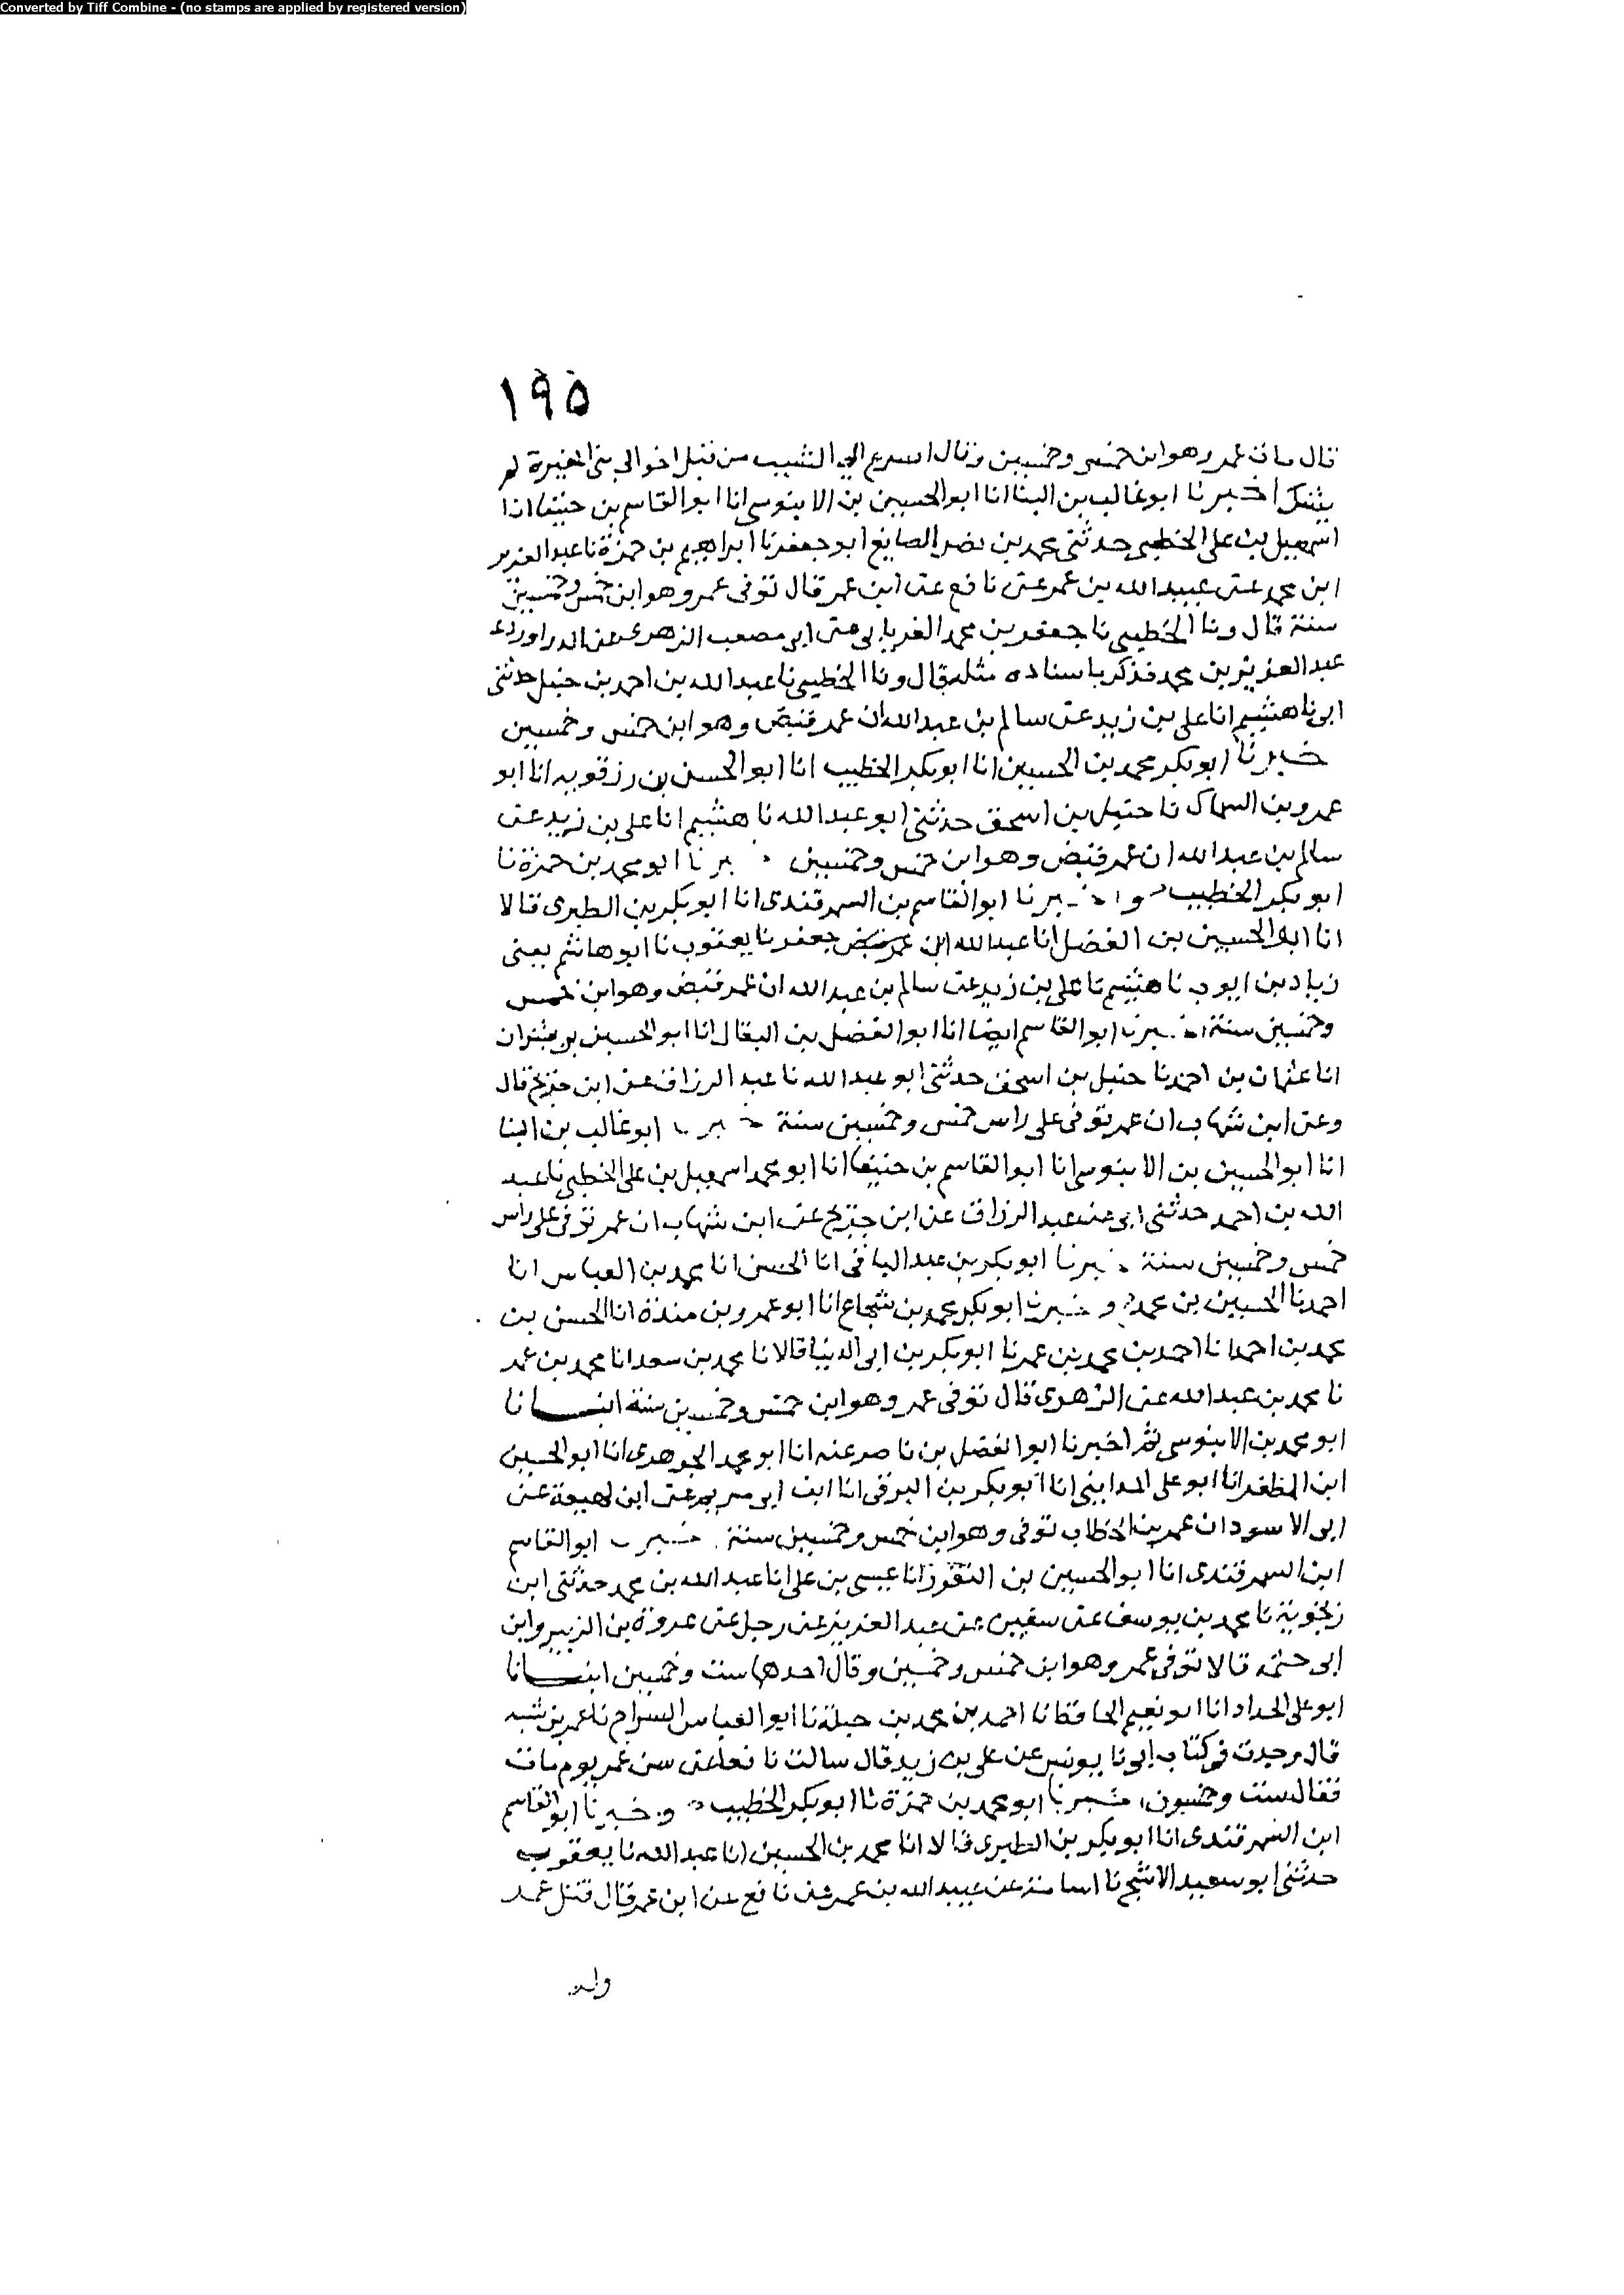 Converted by Tiff Combine - (no stamps are applied by registered version)
١٩٥
قال مات عمر وهو ابن خمس وخمسين وقال اسرع الي الشيب من قبل اخوالي بني المغيرة لم
يشك اخبرنا ابو غالب بن البنا انا ابو الحسين بن الابنوسي انا ابو القاسم بن حنيفا انا
اسمعيل بن علي الخطبي حدثني محمد بن نصر الصايغ ابو جعفر نا ابراهيم بن حمزة نا عبد العزيز
ابن محمد عن عبيد الله بن عمر عن نافع عن ابن عمر قال توفي عمر وهو ابن خمس وخمسين
سنة قال ونا الخطبي نا جعفر بن محمد الفريابي عن ابي مصعب الزهري عن الدراوردي
عبد العزيز بن محمد فذكر باسناده مثله قال ونا الخطبي نا عبد الله بن احمد بن حنبل حدثني
ابي نا هشيم انا علي بن زيد عن سالم بن عبد الله ان عمر قبض وهو ابن خمس وخمسين
خبرنا ابو بكر محمد بن الحسين انا ابو بكر الخطيب انا ابو الحسن بن رزقويه انا ابو
عمرو بن السماك نا حنبل بن اسحق حدثني ابو عبد الله نا هشيم انا علي بن زيد عن
سالم بن عبد الله ان عمر قبض وهو ابن خمس وخمسين برنا ابو محمد بن حمزة نا
ابو بكر الخطيب ح واخبرنا ابو القاسم بن السمرقندي انا ابو بكر بن الطبري قالا
انا ابو الحسين بن الفضل انا عبد الله ابن جعفر نا يعقوب نا ابو هاشم يعني
زياد بن ايوب نا هشيم نا علي بن زيد عن سالم بن عبد الله ان عمر قبض وهو ابن خمس
وخمسين سنة اخبرنا ابو القاسم ايضا انا ابو الفضل بن البقال انا ابو الحسين بن بشران
انا عثمان بن احمد نا حنبل بن اسحق حدثني ابو عبد الله نا عبد الرزاق عن ابن جريج قال
وعن ابن شهاب ان عمر توفي علي راس خمس وخمسين سنة خبرنا ابو غالب بن البنا
انا ابو الحسين بن الابنوسي انا ابو القاسم بن حنيفا انا ابو محمد اسمعيل بن علي الخطبي نا عبد
الله بن احمد حدثني ابي عن عبد الرزاق عن ابن جريج عن ابن شهاب ان عمر توفي علي راس
خمس وخمسين سنة خبرنا ابو بكر بن عبد الباقي انا الحسن انا محمد بن العباس انا
احمد نا الحسين بن محمد ح و خبرنا ابو بكر محمد بن شجاع انا ابو عمرو بن مندة انا الحسن بن
محمد بن احمد انا احمد بن محمد بن عمر نا ابو بكر بن ابي الدنيا قالا نا محمد بن سعد انا محمد بن عمر
نا محمد بن عبد الله عن الزهري قال توفي عمر وهو ابن خمس وخمسين سنة انبـــانا
ابو محمد بن الابنوسي ثم اخبرنا ابو الفضل بن ناصر عنه انا ابو محمد الجوهري انا ابو الحسين
ابن المظفر انا ابو علي المدايني انا ابو بكر بن البرقي انا ابن ابي مريم عن ابن لهيعة عن
ابي الاسود ان عمر بن الخطاب توفي وهو ابن خمس وخمسين سنة خبرنا ابو القاسم
ابن السمرقندي انا ابو الحسين بن النقور انا عيسي بن علي انا عبد الله بن محمد حدثني ابن
زنجوية نا محمد بن يوسف عن سفيان عن عبد العزيز عن رجل عن عروة بن الزبير وابن
ابي حثمه قالا توفي عمر وهو ابن خمس وخمسين وقال احدهما ست وخمسين انبـــانا
ابو علي الحداد انا ابو نعيم الحافظ نا احمد بن محمد بن جبلة نا ابو العباس السراج نا عمر بن شبه
قال وجدت في كتاب ابي نا يونس عن علي بن زيد قال سالت نافعا عن سن عمر يوم مات
فقال ست وخمسون خبرنا ابو محمد بن حمزة نا ابو بكر الخطيب ح و خبرنا ابو القاسم
ابن السمرقندي انا ابو بكر بن الطبري قالا انا محمد بن الحسين انا عبد الله نا يعقوب
حدثني ابو سعيد الاشج نا اسامة عن عبيد الله بن عمر عن نافع عن ابن عمر قال قتل عمر